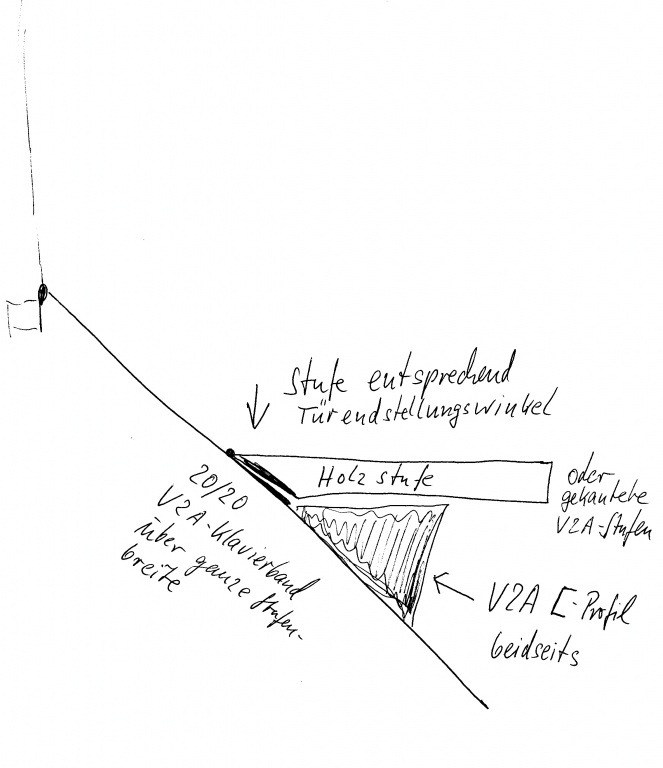 Stufe entsprechend
Türendstellungswinkel
Holzstufe
oder
gekantete
V2A-Stufen
20/20
V2A-Klavierband
über ganze Stufen-
breite
V2A [-Profil
beidseits